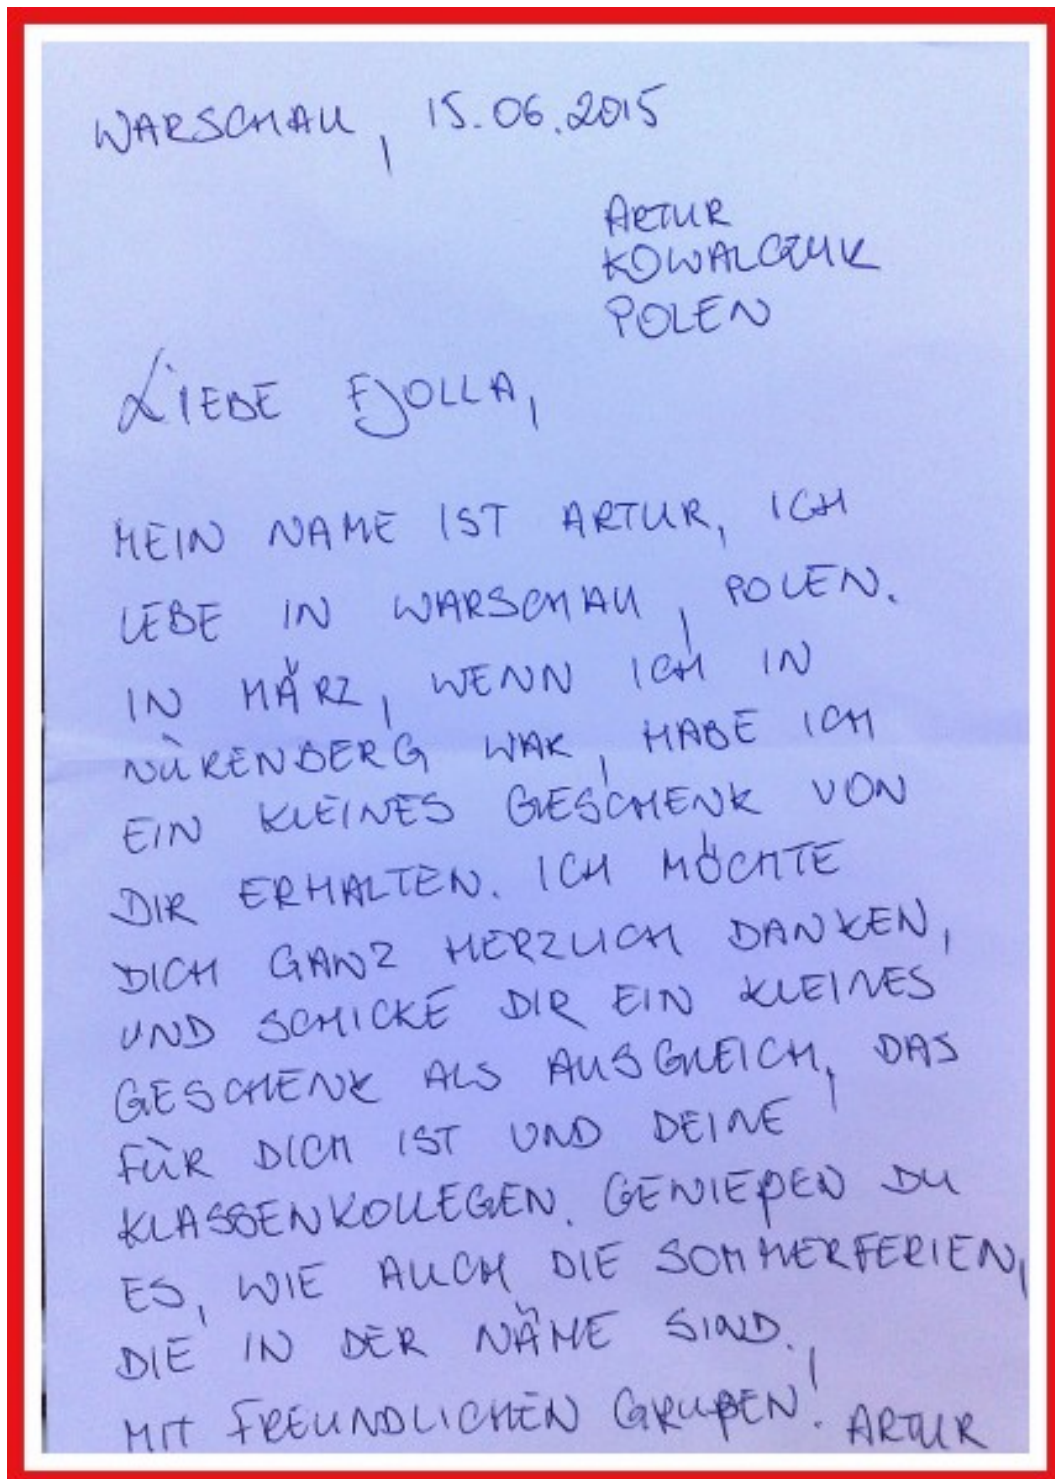 WARSCHAU, 15.06.2015
ARTUR
KOWALCZUK
POLEN
LIEBE FJOLLA,
MEIN NAME IST ARTUR, ICH
LEBE IN WARSCHAU, POLEN.
IN MÄRZ, WENN ICH IN
NÜRENBERG WAR, HABE ICH
EIN KLEINES GESCHENK VON
DIR ERHALTEN. ICH MÖCHTE
DICH GANZ HERZLICH DANKEN,
UND SCHICKE DIR EIN KLEINES
GESCHENK ALS AUSGLEICH, DAS
FÜR DICH IST UND DEINE
KLASSENKOLLEGEN. GENIEßEN DU
ES, WIE AUCH DIE SOMMERFERIEN,
DIE IN DER NÄHE SIND.
MIT FREUNDLICHEN GRUßEN! ARTUR